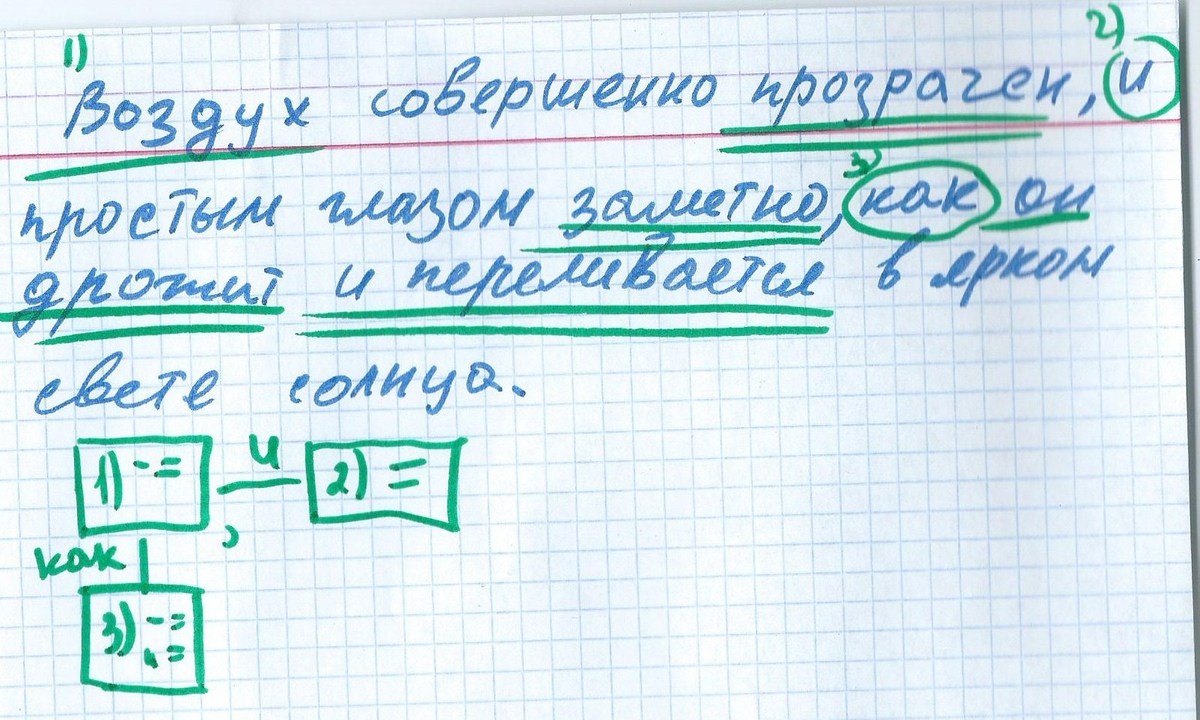 1) 2)
Воздух совершенно прозрачен, и
3)
простым глазом заметно, как он
дрожит и переливается в ярком
свете солнца.
1) -= и 2) =
как ,
3) -=
=